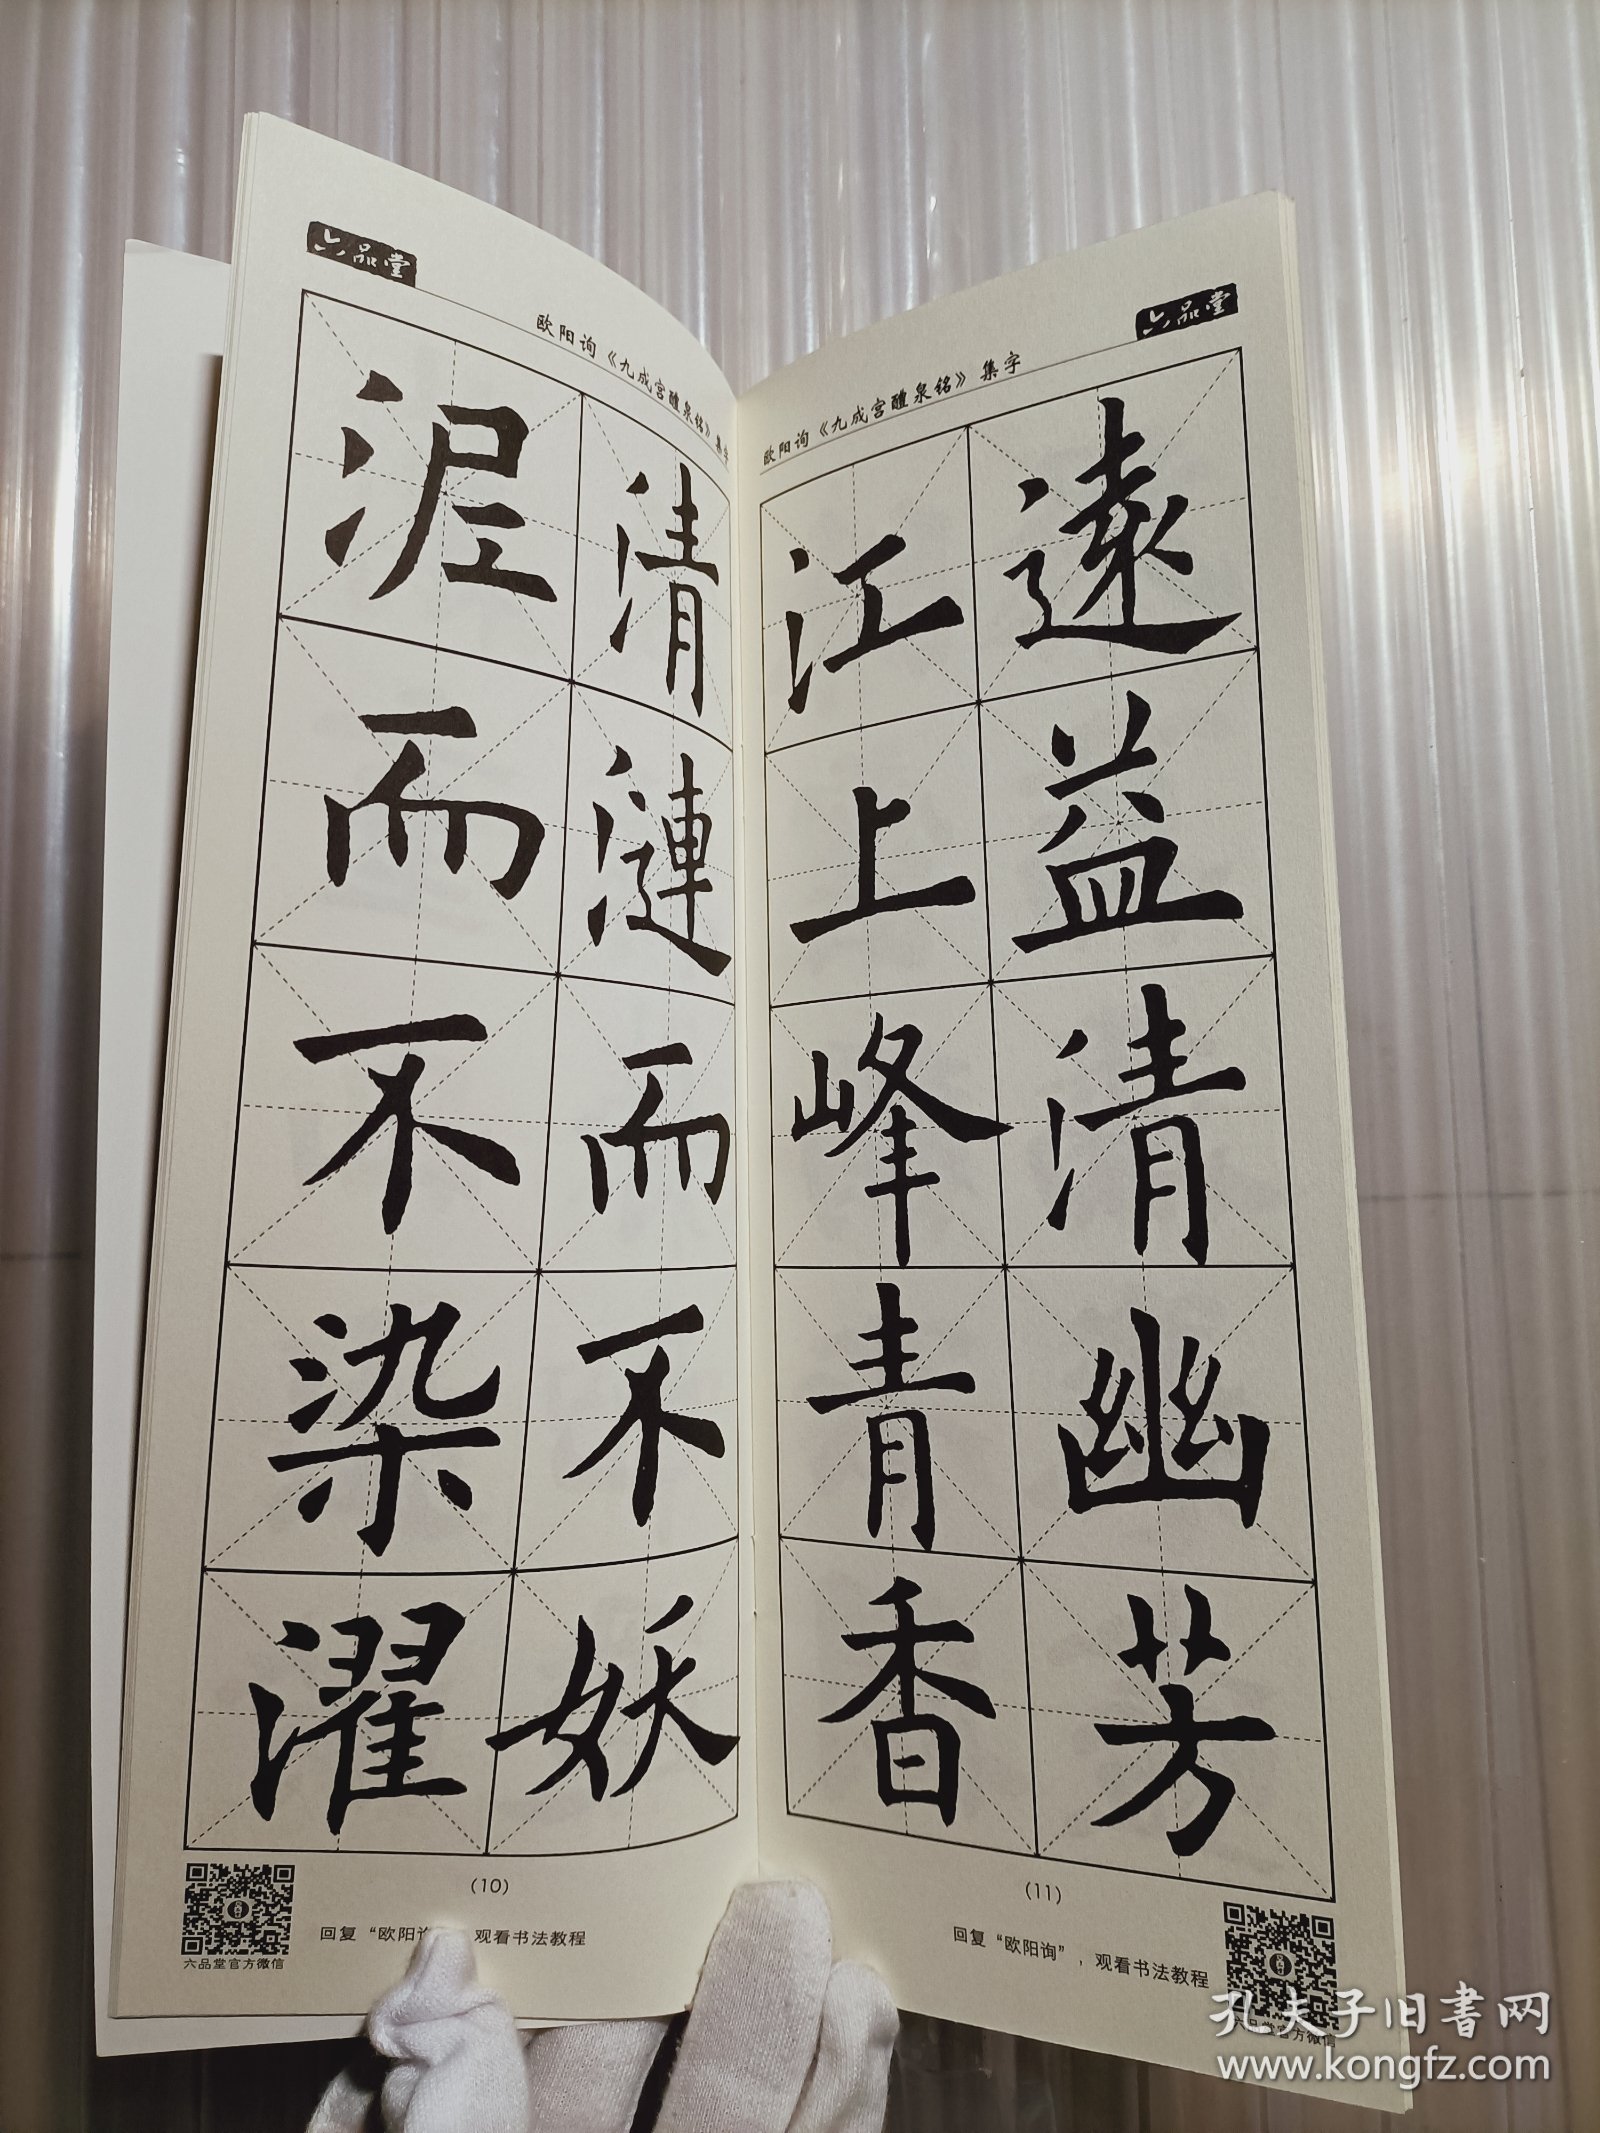 六品堂
欧阳询《九成宫醴泉铭》集字
泥而不染濯
清漣而不妖
(10)
回复“欧阳询”，观看书法教程
六品堂官方微信
六品堂
欧阳询《九成宫醴泉铭》集字
遠益清幽芳
江上峰青香
(11)
回复“欧阳询”，观看书法教程
六品堂官方微信
孔夫子旧書网
www.kongfz.com